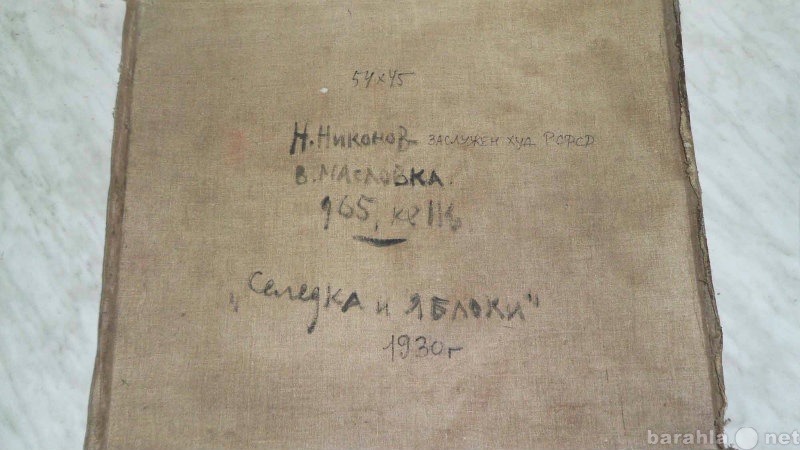 54х45
Н. Никонов заслужен худ РСФСР
В. Масловка.
"Селедка и яблоки"
1930г
barahla.net